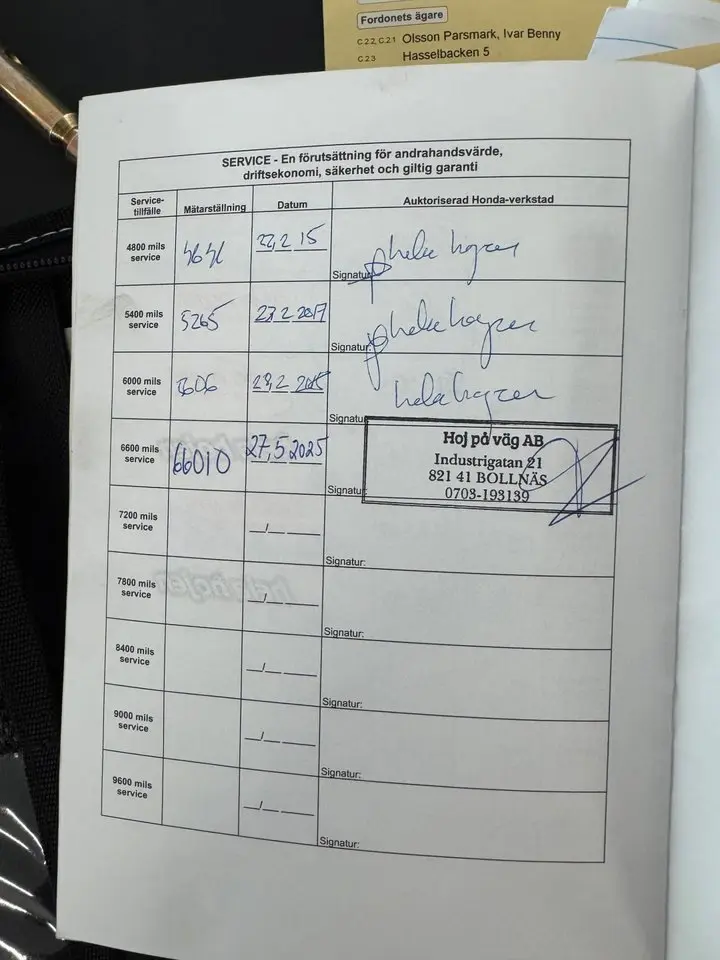 Fordonets ägare
C.2.2, C.2.1 Olsson Parsmark, Ivar Benny
C.2.3 Hasselbacken 5
SERVICE - En förutsättning för andrahandsvärde,
driftsekonomi, säkerhet och giltig garanti
Service-
tillfälle
Mätarställning
Datum
Auktoriserad Honda-verkstad
4800 mils
service
4646
22,2 15
Signatur:
5400 mils
service
5265
23 2 2017
Signatur:
6000 mils
service
Signatur:
6600 mils
service
66010
27,5 2025
Signatur:
Hoj på väg AB
Industrigatan 21
821 41 BOLLNÄS
0703-193139
7200 mils
service
Signatur:
7800 mils
service
Signatur:
8400 mils
service
Signatur:
9000 mils
service
Signatur:
9600 mils
service
Signatur: